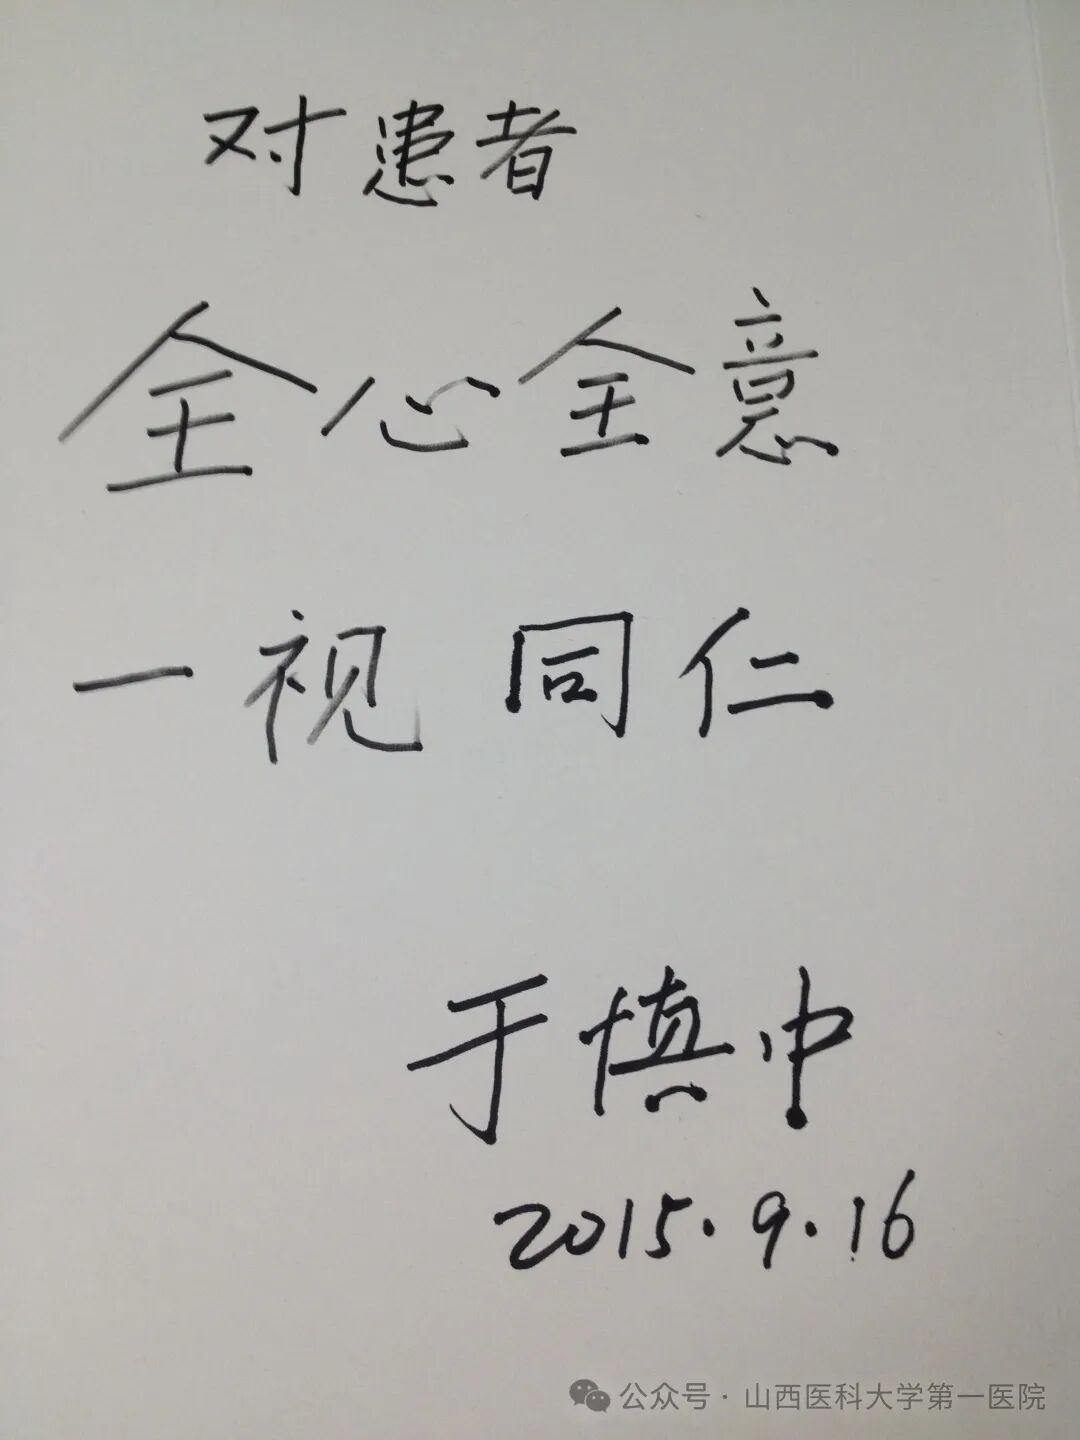 对患者
全心全意
一视同仁
于慎中
2015.9.16
公众号·山西医科大学第一医院